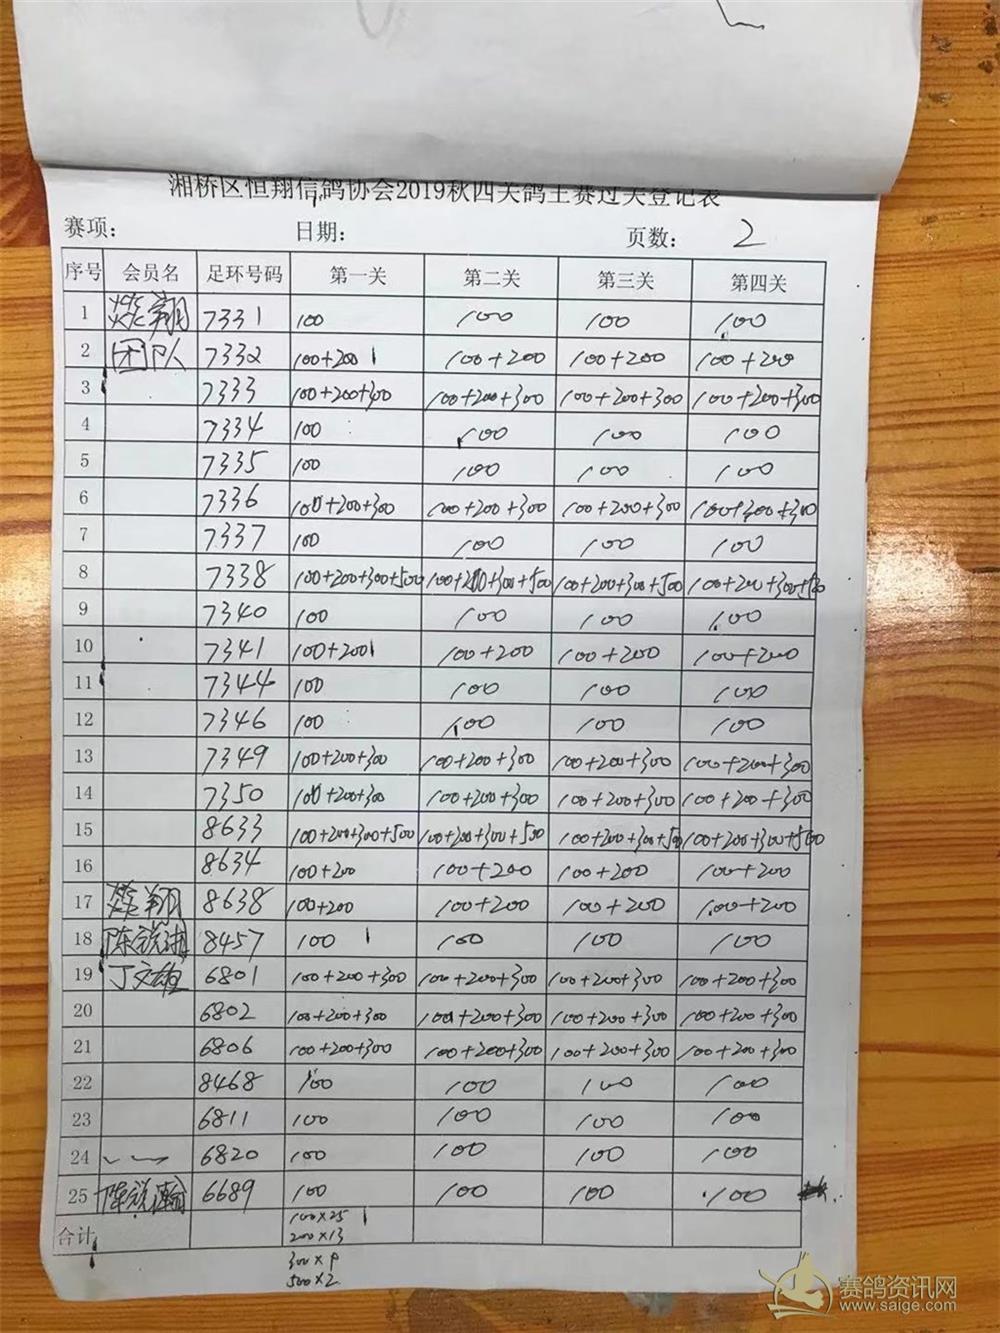 湘桥区恒翔信鸽协会2019秋四关鸽王赛过关登记表
赛项: 日期: 页数: 2
序号 会员名 足环号码 第一关 第二关 第三关 第四关
1 焱翔 7331 100 100 100 100
2 团队 7332 100+200 100+200 100+200 100+200
3 7333 100+200+300 100+200+300 100+200+300 100+200+300
4 7334 100 100 100 100
5 7335 100 100 100 100
6 7336 100+200+300 100+200+300 100+200+300 100+200+300
7 7337 100 100 100 100
8 7338 100+200+300+500 100+200+300+500 100+200+300+500 100+200+300+500
9 7340 100 100 100 100
10 7341 100+200 100+200 100+200 100+200
11 7344 100 100 100 100
12 7346 100 100 100 100
13 7349 100+200+300 100+200+300 100+200+300 100+200+300
14 7350 100+200+300 100+200+300 100+200+300 100+200+300
15 8633 100+200+300+500 100+200+300+500 100+200+300+500 100+200+300+500
16 8634 100+200 100+200 100+200 100+200
17 焱翔 8638 100+200 100+200 100+200 100+200
18 陈锐 8457 100 100 100 100
19 丁文雄 6801 100+200+300 100+200+300 100+200+300 100+200+300
20 6802 100+200+300 100+200+300 100+200+300 100+200+300
21 6806 100+200+300 100+200+300 100+200+300 100+200+300
22 8468 100 100 100 100
23 6811 100 100 100 100
24 6820 100 100 100 100
25 陈锐 6689 100 100 100 100
合计 100×25
200×13
300×9
500×2
赛鸽资讯网
www.saige.com